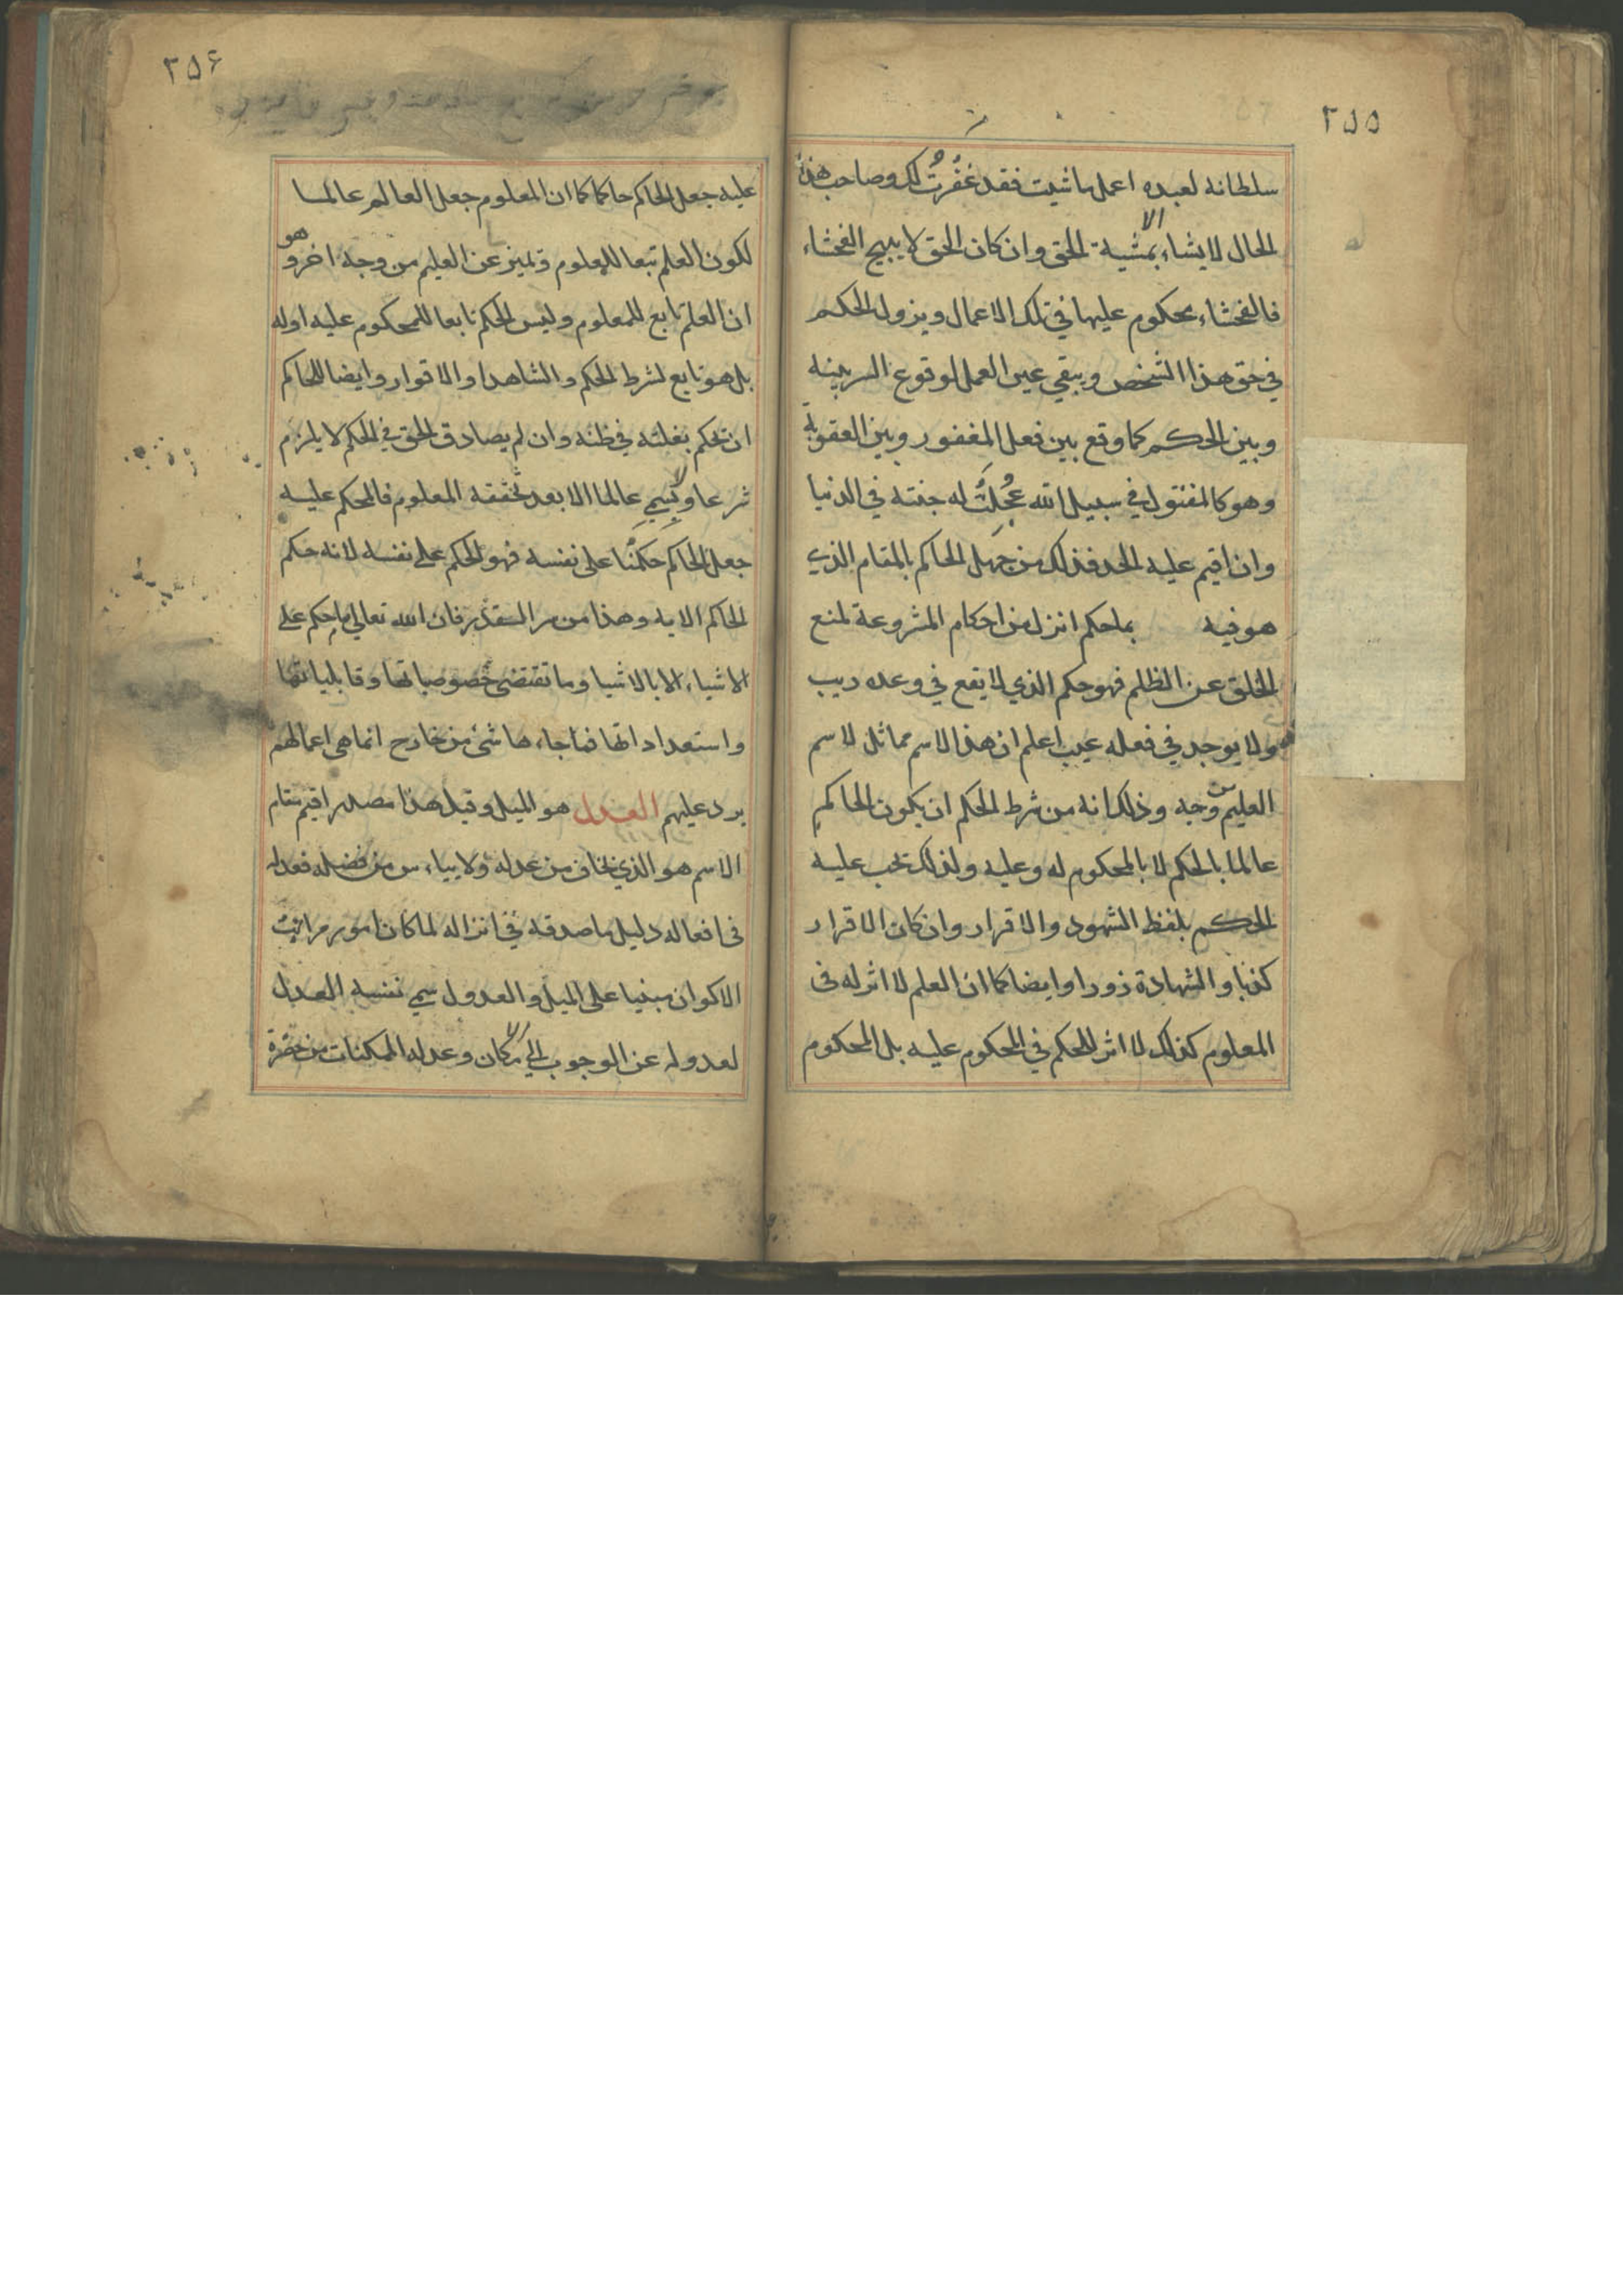 ٢٥٥
سلطانه لعبده اعمل ما شيت فقد غفرت لك وصاحب هذه
الحال لا يشاء الا بمشية الحق وان كان الحق لا يبيح الفحشاء
فالفحشاء محكوم عليها في تلك الاعمال ويزول الحكم
في حق هذا الشخص ويبقي عين العمل لوقوع الستر بينه
وبين الحكم كما وقع بين فعل المغفور وبين العقوبة
وهو كالمقتول في سبيل الله عجلت له جنته في الدنيا
وان اقيم عليه الحد فذلك من جهل الحاكم بالمقام الذي
هو فيه بما حكم انزل من احكام المشروعة لمنع
الخلق عن الظلم فهو حكم الذي لا يقع في وعده ريب
ولا يوجد في فعله عيب اعلم ان هذا الاسم مماثل لاسم
العليم من وجه وذلك انه من شرط الحكم ان يكون الحاكم
عالما بالحكم لا بالمحكوم له وعليه ولذلك تجب عليه
الحكم بلفظ الشهود والاقرار وان كان الاقرار
كذبا والشهادة زورا وايضا كما ان العلم لا اثر له في
المعلوم كذلك لا اثر للحكم في المحكوم عليه بل المحكوم
٢٥۶
عليه جعل الحاكم حاكما كما ان المعلوم جعل العالم عالما
لكون العلم تبعا للمعلوم وتميز عن العليم من وجه اخر وهو
ان العلم تابع للمعلوم وليس الحكم تابعا للمحكوم عليه اوله
بل هو تابع لشرط الحكم والشاهدا والاقوار وايضا للحاكم
ان تحكم بغلبته في ظنه وان لم يصادق الحق في الحكم لا يلزم
شرعا ولا يسمي عالما الا بعد تحققه المعلوم فالمحكم عليه
جعل الحاكم حكمًا على نفسه فهو الحكم على نفسه لانه حكم
الحاكم الا به وهذا من سر القدر فان الله تعالي ما حكم على
الاشياء الا بالاشيا وما تقتضي خصوصياتها وقابلياتها
واستعداداتها فما جاءها شئ من خارج انما هي اعمالهم
يرد عليهم العدل هو الميل وقيل هذا مصدر اقيم مقام
الاسم هو الذي تخاف من عدله ولا ييأس من فضله فعدله
في افعاله دليل ما صدقه في انزاله لما كان امور مراتب
الاكوان مبنيا على الميل والعدول سمي نفسه العدل
لعدوله عن الوجوب الي الامكان وعدله الممكنات من حضرة